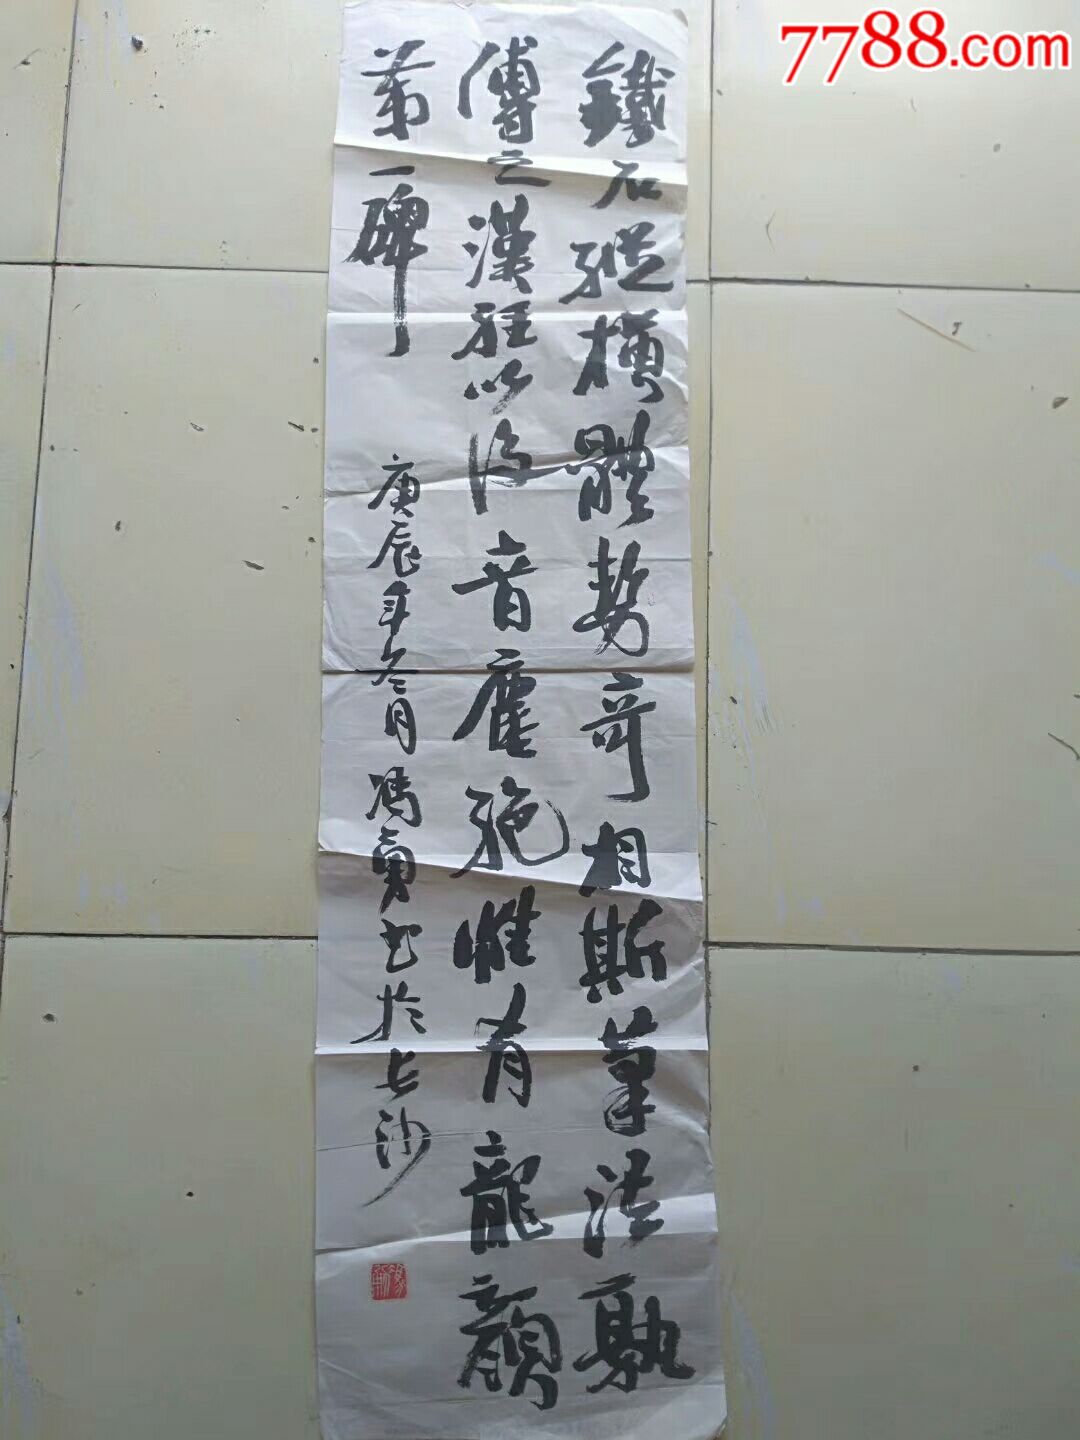 7788.com
鐵石縱橫體勢奇相斯筆法孰
傳之漢經以後音塵絕惟有龍顏
第一碑
庚辰年冬月馮勇书於长沙